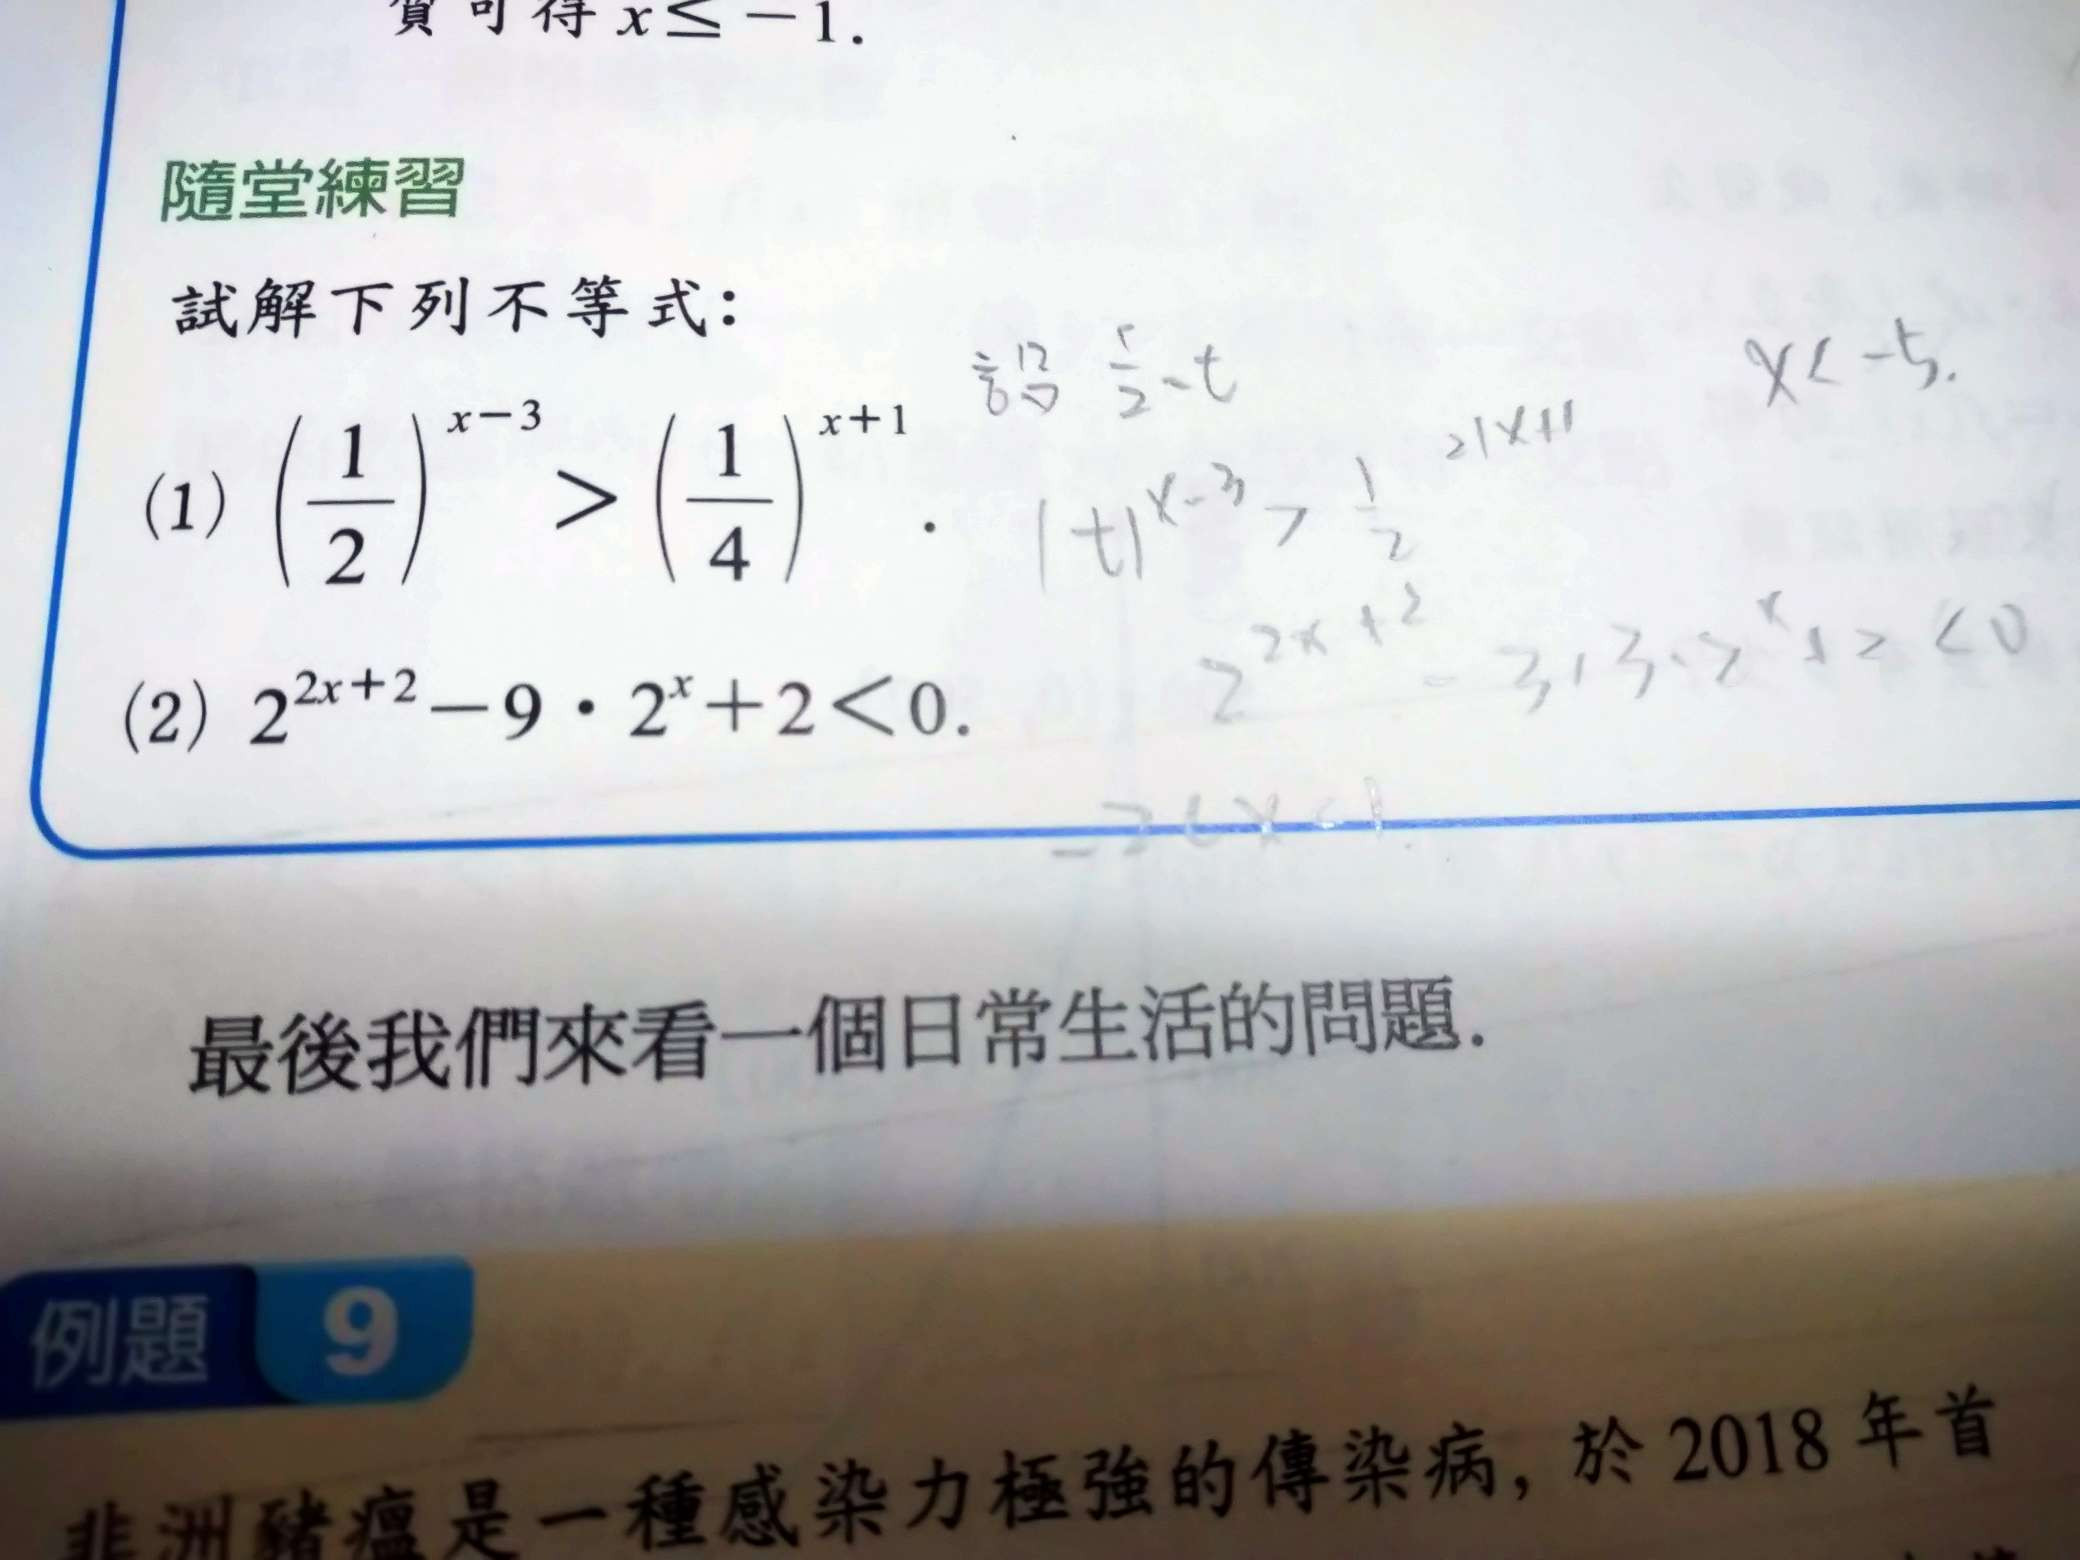 質可得 x≤−1.
隨堂練習
試解下列不等式:
設 1/2 = t
x < -5.
(1) (1/2)^(x−3) > (1/4)^(x+1) .
|t|^(x-3) > 1/2^(2|x+1|)
2^(2x+2) - 3·3·2^x + 2 < 0
(2) 2^(2x+2)−9·2^x+2<0.
-2<x<1.
最後我們來看一個日常生活的問題.
例題 9
非洲豬瘟是一種感染力極強的傳染病, 於 2018 年首